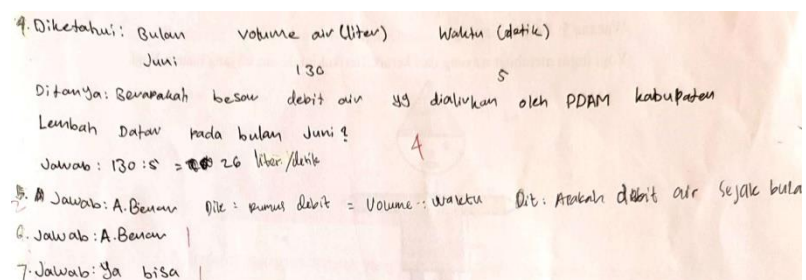 4. Diketahui: Bulan volume air (liter) Waktu (detik)
Juni 130 5
Ditanya: Berapakah besar debit air yg dialirkan oleh PDAM kabupaten
Lembah Datar pada bulan Juni?
4
Jawab: 130:5 = 26 liter/detik
5. Jawab: A. Benar Dik: rumus debit = Volume : waktu Dit: Apakah debit air sejak bula
6. Jawab: A. Benar 1
7. Jawab: Ya bisa 1